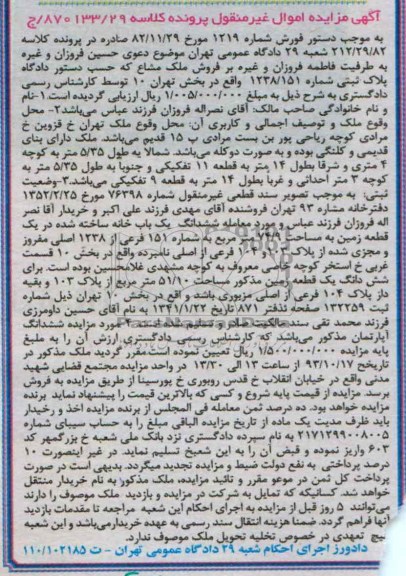 آگهی مزایده اموال غیرمنقول پرونده کلاسه ۸۷۰/۱۳۳/۲۹/ج
به موجب دستور فروش شماره ۱۲۱۹ مورخ ۸۲/۱۱/۲۹ صادره در پرونده کلاسه
۲۱۲/۲۹/۸۲ شعبه ۲۹ دادگاه عمومی تهران موضوع دعوی حسین فروزان و غیره
به طرفیت فاطمه فروزان و غیره بر فروش ملک مشاع که حسب دستور دادگاه
پلاک ثبتی شماره ۱۲۳۸/۱۵۱ واقع در بخش تهران ۱۰ توسط کارشناس رسمی
دادگستری به شرح ذیل به مبلغ ۱/۰۰۵/۰۰۰/۰۰۰ ریال ارزیابی گردیده است.۱-نام
و نام خانوادگی صاحب مالک: آقای نصراله فروزان فرزند عباس می‌باشد۲- محل
وقوع ملک و توصیف اجمالی و کاربری آن: محل وقوع ملک تهران خ قزوین خ
مرادی کوچه ریاحی پور بن بست مرادی پ ۱۵ قدیم می‌باشد. ملک دارای بنای
قدیمی و کلنگی بوده و به صورت دوکله می‌باشد. شمالا به طول ۵/۳۵ متر به کوچه
۴ متری و شرقا بطول ۱۴ متر به قطعه ۱۱ تفکیکی و جنوبا به طول ۵/۳۵ متر به
کوچه ۳ متر احداثی و غربا بطول ۱۴ متر به قطعه ۹ تفکیکی می‌باشد.۳-وضعیت
ثبتی: به موجب تصویر سند قطعی غیرمنقول شماره ۷۶۳۹۸ مورخ ۱۳۵۲/۲/۲۵
دفترخانه مشاره ۹۳ تهران فروشنده آقای مهدی فرزند علی اکبر و خریدار آقا نصر
اله فروزان فرزند عباس و مورد معامله ششدانگ یک باب خانه ساخته شده در یک
قطعه زمین به مساحت متر مربع به شماره ۱۵۱ فرعی از ۱۲۳۸ اصلی مفروز
و مجزی شده از پلاک و ۱۰۴ فرعی از اصلی نامبرده واقع در بخش ۱۰ قسمت
غربی خ استخر کوچه خاصی معروف به کوچه مشهدی غلامحسین بوده است. برای
شش دانگ یک قطعه زمین مذکور مساحت ۵۱/۱۰ متر مربع از پلاک ۱۰۳ و بقیه
داز پلاک ۱۰۴ فرعی از اصلی مزبوری باشد و اقع در بخش ۱۰ تهران ذیل شماره
ثبت ۱۳۲۲۵۹ صفحه ۸۷۱ تاریخ ۱۳۴۱/۱/۲۲ به نام آقای حسین داومرزی
فرزند محمد تقی سند مالکیت صادر و تسلیم شده است. مورد مزایده ششدانگ
آپارتمان مذکور می‌باشد که کارشناس رسمی دادگستری ارزش آن را به مبلغ
پایه مزایده ۱/۵۰۰/۰۰۰/۰۰۰ ریال تعیین نموده است.مقرر گردید ملک مذکور در
تاریخ ۹۳/۱۰/۱۷ از ساعت ۱۳ الی ۱۳/۳۰ در واحد مزایده مجتمع قضایی شهید
مدنی واقع در خیابان انقلاب خ قدس روبوری خ پورسینا از طریق مزایده به فروش
برسد. مزایده از قیمت پایه شروع و کسی که بالاترین قیمت را پیشنهاد نماید برنده
مزایده خواهد بود. ده درصد ثمن معامله فی المجلس از برنده مزایده اخذ و رخیدار
باید ظرف مدیت یک ماده از تاریخ مزایده الباقی مبلغ را به حساب سیبای شماره
۲۱۷۱۲۹۹۰۰۸۰۰۵ به نام سپرده دادگستری نزد بانک ملی شعبه خ بزرگمهر کد
۶۰۳ واریز نموده و قبض آن را به این شعبخ تسلیم نماید. در غیر اینصورت ۱۰
درصد پرداختی به نفع دولت ضبط و مزایده تجدید میگردد. بدیهی است در صورت
پرداخت کل ثمن در موعو مقرر و تائید مزایده، ملک مذکور به نام خریدار منتقل
خواهد شد. کسانیکه که تمایل به شرکت در مزایده و بازدید ملک موصوف را دارند
می‌توانند ۵ روز قبل از مزایده به اجرای احکام این شعبه مراجعه تا مقدمات بازدید
آنها فراهم گردد. ضمنا هزینه انتقال سند رسمی به عهده خریدارمی‌باشد و این شعبه
هیچ تعهدی در خصوص تخلیه تحویل ملک موصوف ندارد.
دادورز اجرای احکام شعبه ۲۹ دادگاه عمومی تهران - ت ۱۱۰/۱۰۲۱۸۵